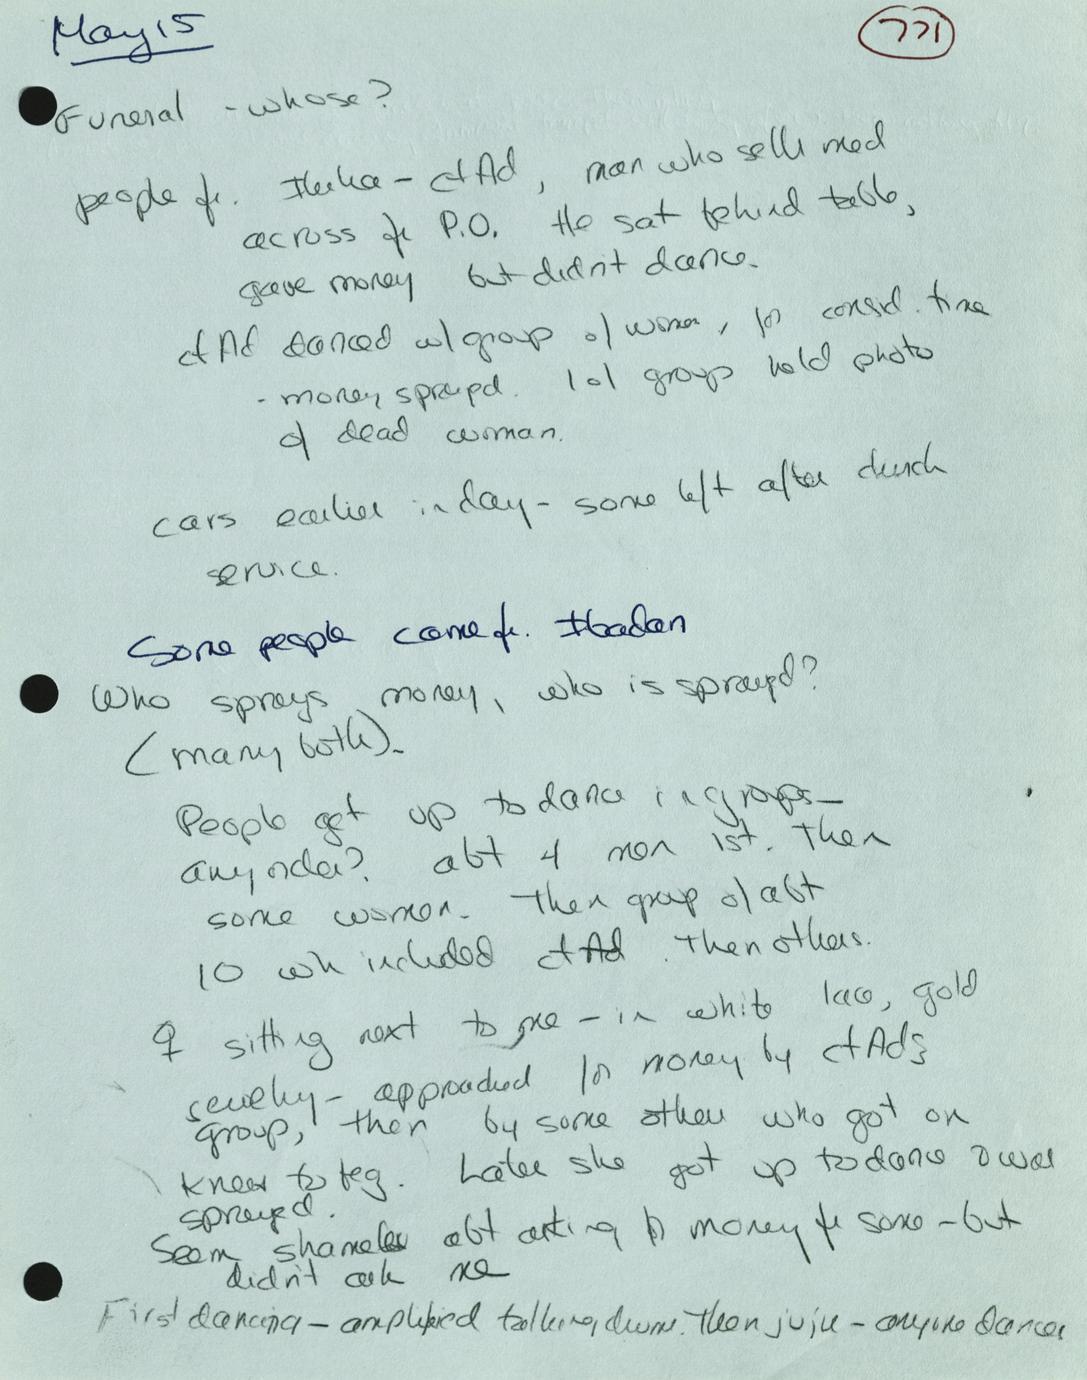 May 15
771
Funeral - whose?
people fr. - ct Ad, man who sells med
across fr P.O. He sat behind table,
gave money but didn't dance.
ct Ad danced w/ group of women, for consid. time
- money sprayed. 1 of group held photo
of dead woman.
cars earlier in day - some left after church
service.
Some people came fr. Ibadan
Who sprays money, who is sprayed?
(many both).
People get up to dance in groups -
any order? abt 4 men 1st. Then
some women. Then group of abt
10 wh included ct Ad. Then others.
♀ sitting next to me - in white lace, gold
jewelry - approached for money by ct Ad's
group, then by some others who got on
knees to beg. Later she got up to dance & was
sprayed.
Seem shameless abt asking for money fr some - but
didn't ask me
First dancing - amplified talking drum. Then juju - anyone dances